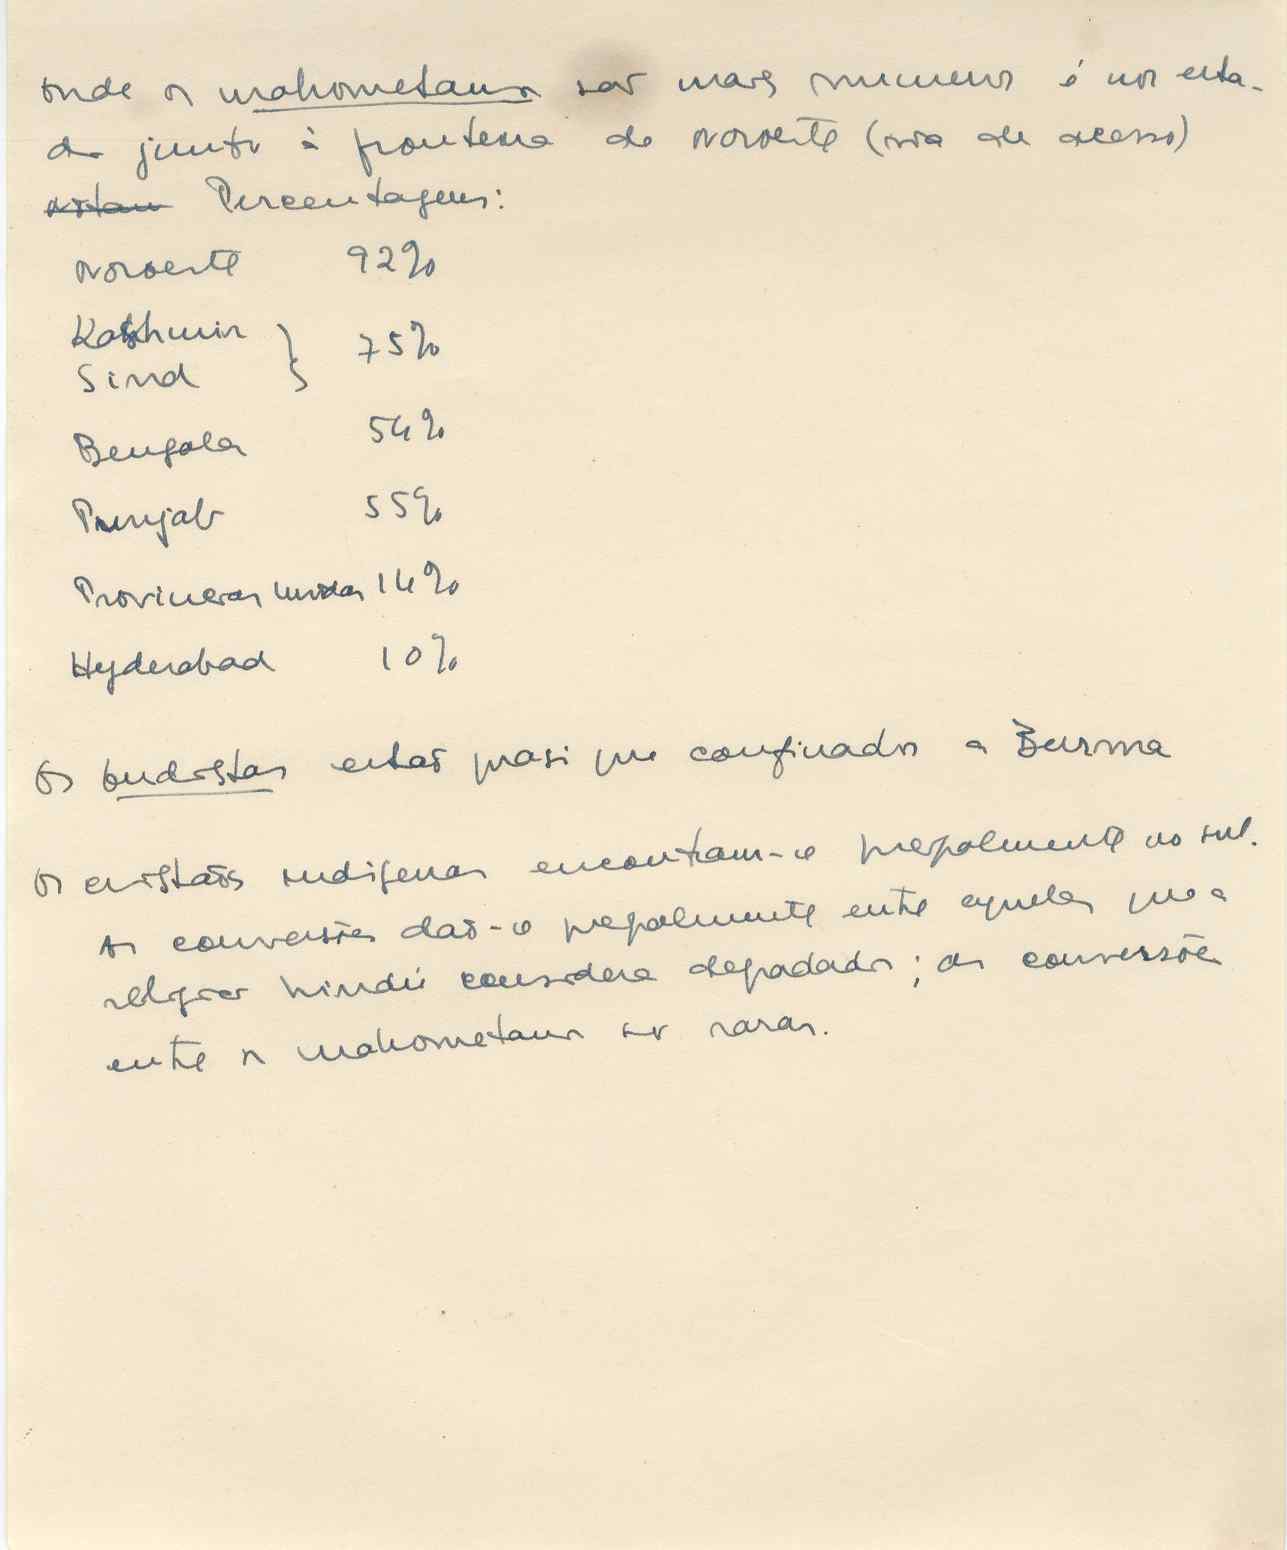 onde os mahometanos são mais numerosos é nos esta-
dos junto à fronteira do Noroeste (via de acesso)
Percentagens:
Noroeste 92%
Kashmir
Sind } 75%
Bengala 54%
Punjab 55%
Provincias Unidas 14%
Hyderabad 10%
Os budistas estão quasi que confinados a Burma
Os cristãos indigenas encontram-se no sul.
As conversões dão-se entre aqueles que a
religião hindú considera degradados; as conversões
entre os mahometanos são raras.